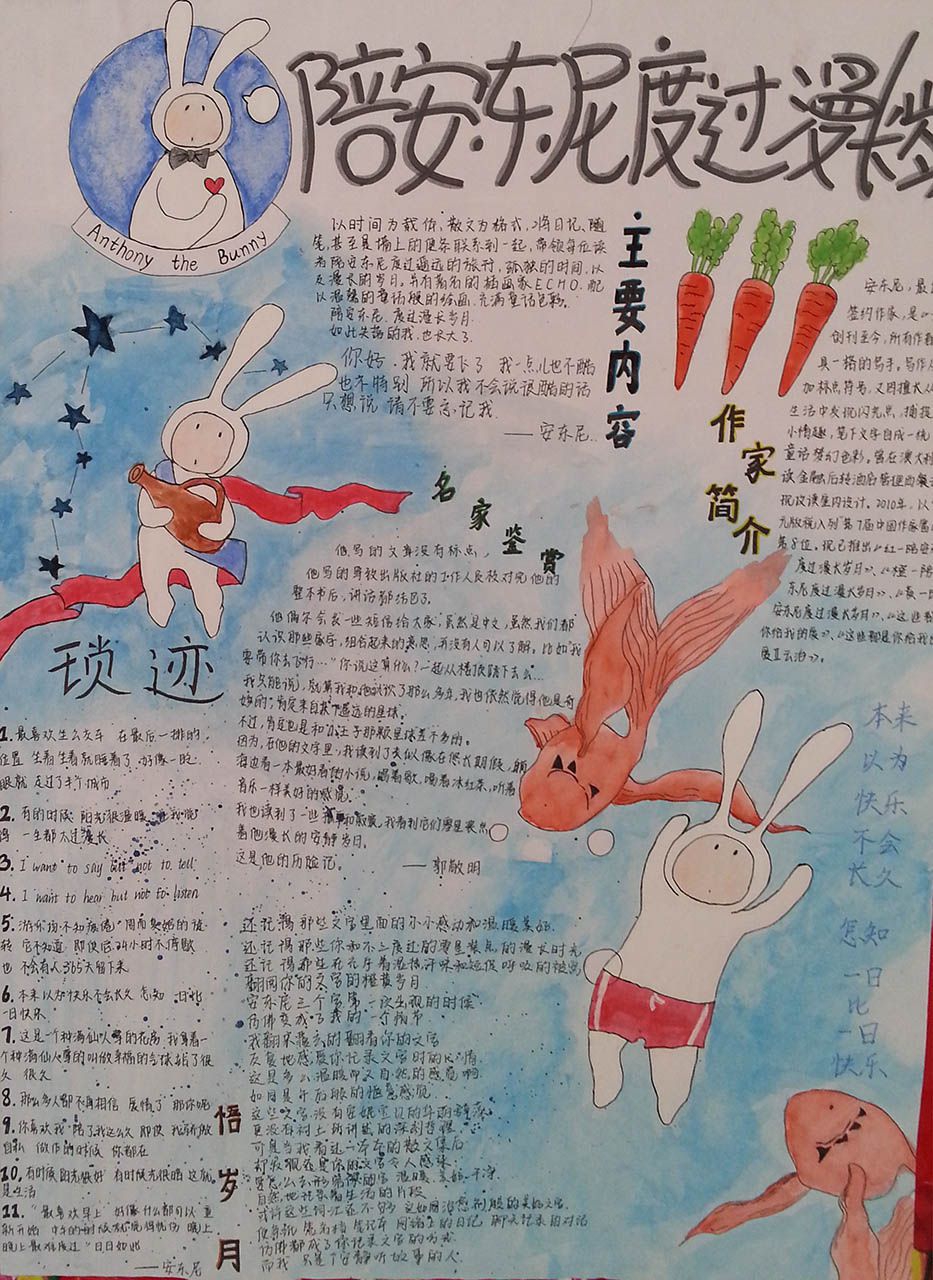 陪安·东·尼度过漫长岁
Anthony the Bunny
主要内容
以时间为载体,散文为格式,将日记、随
笔,甚至桌上的便条联系到一起,带领每位读
者陪安东尼度过遥远的旅行,孤独的时间,以
及漫长的岁月。并有著名的插画家ECHO.配
以温馨的童话般的绘画,充满童话色彩。
陪安东尼 度过漫长岁月
如此失落的我,也长大了
你好.我就要长了 我一点儿也不酷
也不特别 所以我不会说很酷的话
只想说 请不要忘记我
——安东尼.
作家简介
安东尼,最
签约作家,是
创刊至今,所有作
具一格的写手。写作
加标点符号,又因擅长从
生活中发现闪光点,捕捉
小情趣,笔下文字自成一统
童话梦幻色彩。曾在澳大利
读金融后转酒店管理
现改读室内设计。2010年,以
元版税入列"第7届中国作家富
第8位。现已推出《红—陪安
度过漫长岁月》、《橙—陪
东尼度过漫长岁月》、
安东尼度过漫长岁月》、《这些都
你给我的爱》、《这些都是你给我
爱Ⅱ云治》。
名家鉴赏
他写的文章没有标点,
他写的导致出版社的工作人员校对完他的
整本书后,讲话都结巴了。
他偶尔会发一些短信给大家,虽然是中文,虽然我们都
认识那些字,组合起来的意思,并没有人可以了解,比如"我
要带你去飞行…"你说这算什么?一起从楼顶跳下去么…
我只能说,就算我和他认识了那么多年,我也依然觉得他是奇
妙的,肯定来自某个遥远的星球。
不过,肯定也是和小王子那颗星球差不多的。
因为,在他的文字里,我读到了类似像在悠长假期,
海边看一本最好看的小说,唱着歌,喝着冰红茶,听着
音乐一样美好的感觉.
我也读到了一些
着他漫长的安静岁月。
这是他的历险记。
——郭敬明
琐迹
1.最喜欢坐公交车 在最后一排的
位置 坐着坐着就睡着了 好像一眨
眼就 走过了半个城市
2.有的时候 阳光很温暖
得 一生都太过漫长
3. I want to say but not to tell
4. I want to hear but not to listen
5.游乐场不知疲倦
转 它不知道 即使它24小时不停歇
也 不会有人365天留下来
6.本来以为快乐不会长久 怎知 一日比
一日快乐
7.这是一个种满仙人掌的花房 我拿着一
个种满仙人掌的叫做幸福的
久 很久
8.那么多人都不再相信 爱情了 那你呢
9.你喜欢我 陪了我这么久 即使 我骄傲
自私 做作的时候 你都在
10.有时候阳光很好 有时候光很暗 这就
是生活
11."最喜欢早上 好像什么都可以 重
新开始 中午的时候就觉得忧伤 晚上
晚上最难度过" 日日如此
——安东尼
悟岁月
还记得那些文字里面的小小感动和温暖美好.
还记得那些你和不二度过的零星装点的漫长时光
翻阅你的文字的橙黄岁月
安东尼三个字第一次出现的时候
仿佛变成了我的一个残节
我翻来覆去的翻看你的文字
反复地感受你记录文字时的心情.
这是多么温暖而又自然的感觉啊
可是当我看过一本本的散文集后
自然地记录着生活的片段
仿佛都成了你记录文字的方式
而我 只是个安静听故事的人.
本来
以为
快乐
不会
长久
怎知
一日
比
一日
快乐